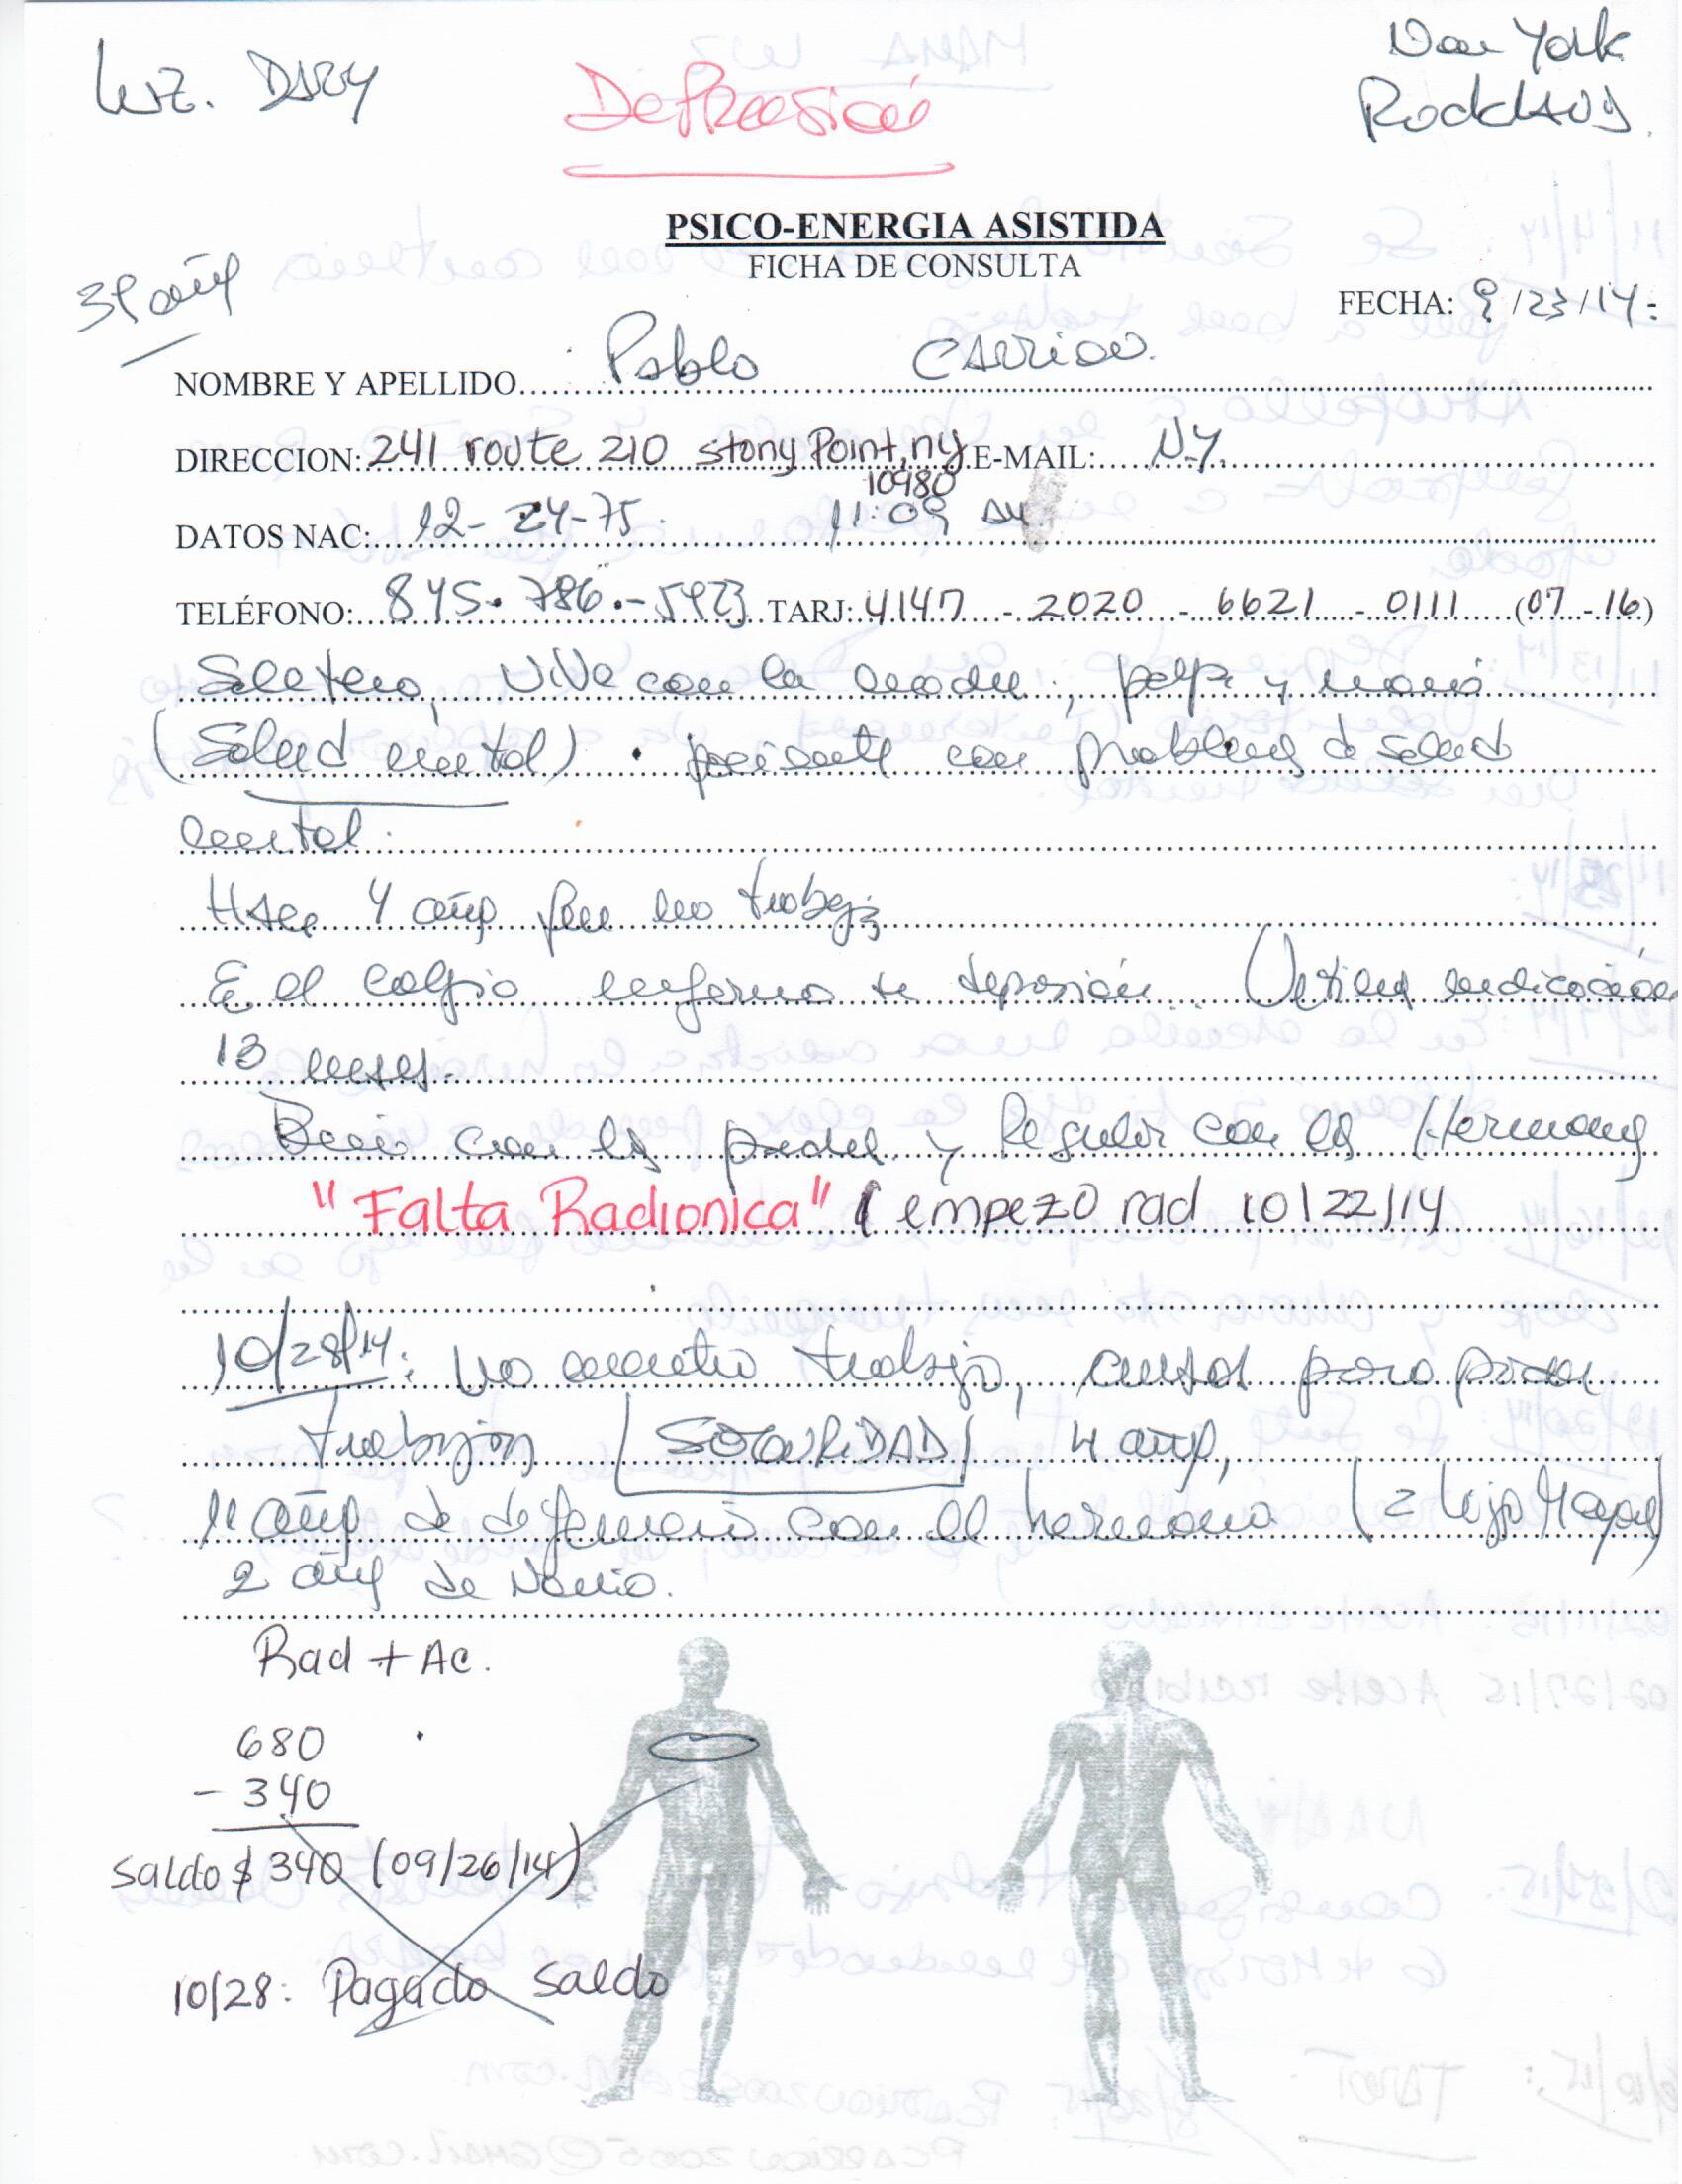 Luz. DARY
Depresión
New York
Rockland.
PSICO-ENERGIA ASISTIDA
FICHA DE CONSULTA
39 años
FECHA: 9/23/14.
NOMBRE Y APELLIDO Pablo Carrion.
DIRECCION: 241 route 210 stony Point, ny E-MAIL: N.Y.
10980
DATOS NAC: 12-24-75. 11:09 AM
TELÉFONO: 845.786.-5923 TARJ: 4147 - 2020 - 6621 - 0111 (07-16)
Soltero, vive con la madre, papá y
(Salud mental). paciente con problemas de salud
mental.
Hace 4 años que no trabaja
En el colegio enfermo de depresión. medicación
13 meses.
Bien con los padres y Regular con los Hermanos
"Falta Radionica" ( empezo rad 10/22/14
10/28/14: No encuentra trabajo, para poder
trabajar SEGURIDAD 4 años,
11 años de diferencia con el hermano (2 hijo Mayor)
2 años de Novio.
Rad + Ac.
680
- 340
saldo $ 340 (09/26/14)
10/28: Pagado saldo